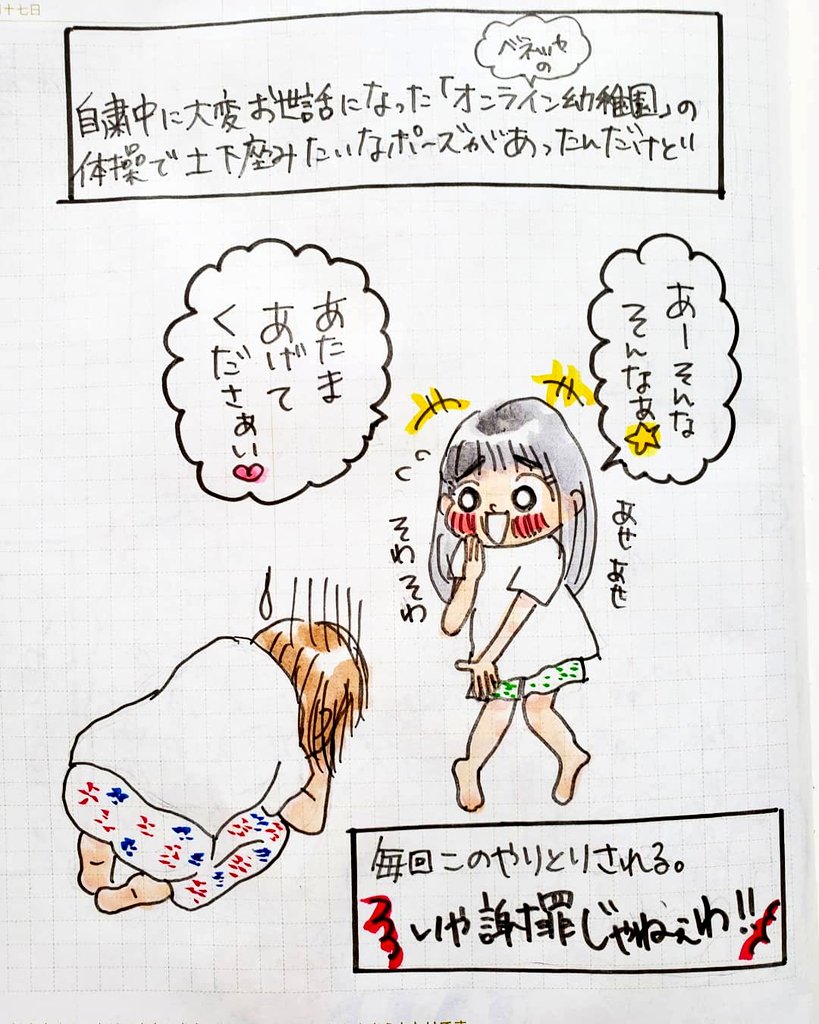 十七日
ベネッセ
の
自粛中に大変お世話になった「オンライン幼稚園」の
体操で土下座みたいなポーズがあったんだけど
あーそんな
そんなぁ
あたま
あげて
くださぁい
あせあせ
そわそわ
毎回このやりとりされる。
いや謝罪じゃねぇわ!!